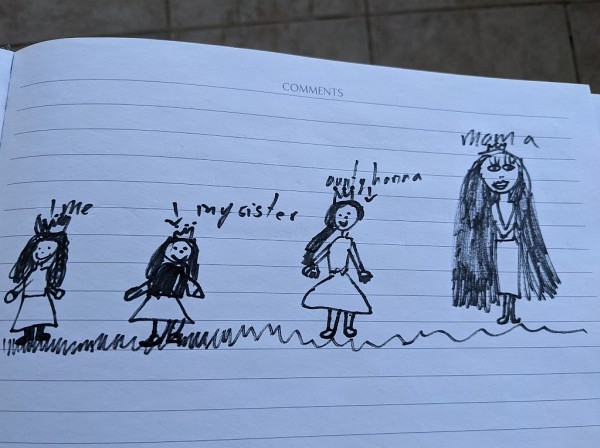 COMMENTS
mama
aunty hanna
me
my sister